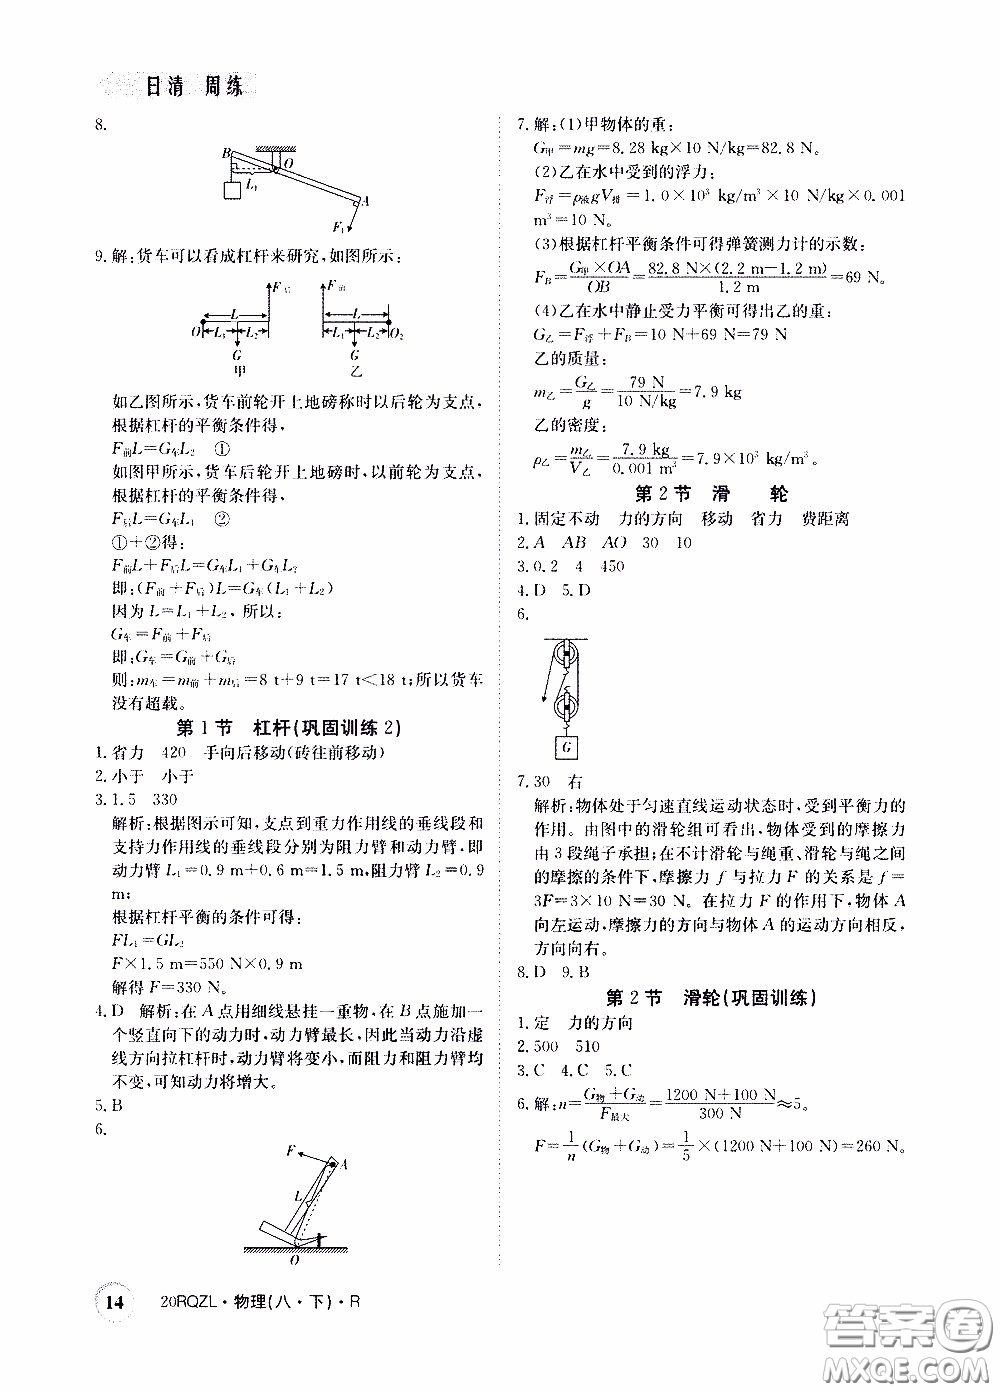 日清 周练
8.
B
O
L₁
A
F₁
9. 解:货车可以看成杠杆来研究,如图所示:
F后 F前
L L
O L₁ L₂ L₁ L₂ O₂
G G
甲 乙
如乙图所示,货车前轮开上地磅称时以后轮为支点,
根据杠杆的平衡条件得,
F前L=G车L₂ ①
如图甲所示,货车后轮开上地磅时,以前轮为支点,
根据杠杆的平衡条件得,
F后L=G车L₁ ②
①+②得:
F前L+F后L=G车L₁+G车L₂
即:(F前+F后)L=G车(L₁+L₂)
因为 L=L₁+L₂,所以:
G车=F前+F后
即:G车=G前+G后
则:m车=m前+m后=8 t+9 t=17 t<18 t;所以货车
没有超载。
第 1 节 杠杆(巩固训练 2)
1. 省力 420 手向后移动(砖往前移动)
2. 小于 小于
3. 1.5 330
解析:根据图示可知,支点到重力作用线的垂线段和
支持力作用线的垂线段分别为阻力臂和动力臂,即
动力臂 L₁=0.9 m+0.6 m=1.5 m,阻力臂 L₂=0.9
m;
根据杠杆平衡的条件可得:
FL₁=GL₂
F×1.5 m=550 N×0.9 m
解得 F=330 N。
4. D 解析:在 A 点用细线悬挂一重物,在 B 点施加一
个竖直向下的动力时,动力臂最长,因此当动力沿虚
线方向拉杠杆时,动力臂将变小,而阻力和阻力臂均
不变,可知动力将增大。
5. B
6.
F
A
L
O
14 20RQZL·物理(八·下)·R
7. 解:(1)甲物体的重:
G甲=mg=8.28 kg×10 N/kg=82.8 N。
(2)乙在水中受到的浮力:
F浮=ρ液gV排=1.0×10³ kg/m³×10 N/kg×0.001
m³=10 N。
(3)根据杠杆平衡条件可得弹簧测力计的示数:
F_B=G甲×OA/OB=82.8 N×(2.2 m-1.2 m)/1.2 m=69 N。
(4)乙在水中静止受力平衡可得出乙的重:
G乙=F浮+F_B=10 N+69 N=79 N
乙的质量:
m乙=G乙/g=79 N/10 N/kg=7.9 kg
乙的密度:
ρ乙=m乙/V乙=7.9 kg/0.001 m³=7.9×10³ kg/m³。
第 2 节 滑 轮
1. 固定不动 力的方向 移动 省力 费距离
2. A AB AO 30 10
3. 0.2 4 450
4. D 5. D
6.
G
7. 30 右
解析:物体处于匀速直线运动状态时,受到平衡力的
作用。由图中的滑轮组可看出,物体受到的摩擦力
由 3 段绳子承担;在不计滑轮与绳重、滑轮与绳之间
的摩擦的条件下,摩擦力 f 与拉力 F 的关系是 f=
3F=3×10 N=30 N。在拉力 F 的作用下,物体 A
向左运动,摩擦力的方向与物体 A 的运动方向相反,
方向向右。
8. D 9. B
第 2 节 滑轮(巩固训练)
1. 定 力的方向
2. 500 510
3. C 4. C 5. C
6. 解:n=G物+G动/F最大=1200 N+100 N/300 N≈5。
F=1/n(G物+G动)=1/5×(1200 N+100 N)=260 N。
答案圈
MXQE.COM